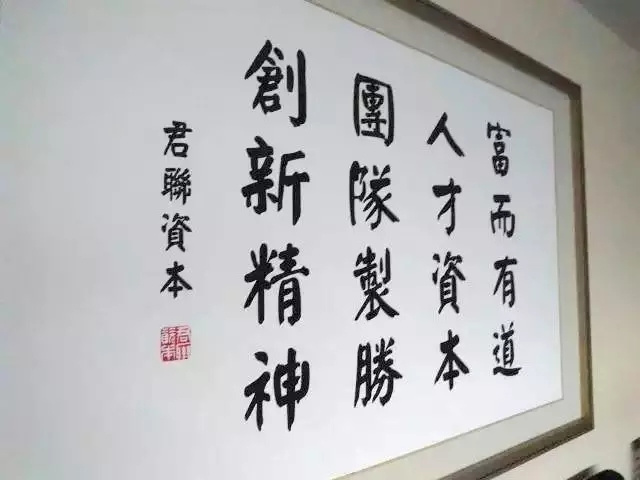 富而有道
人才資本
團隊製勝
創新精神
君聯資本